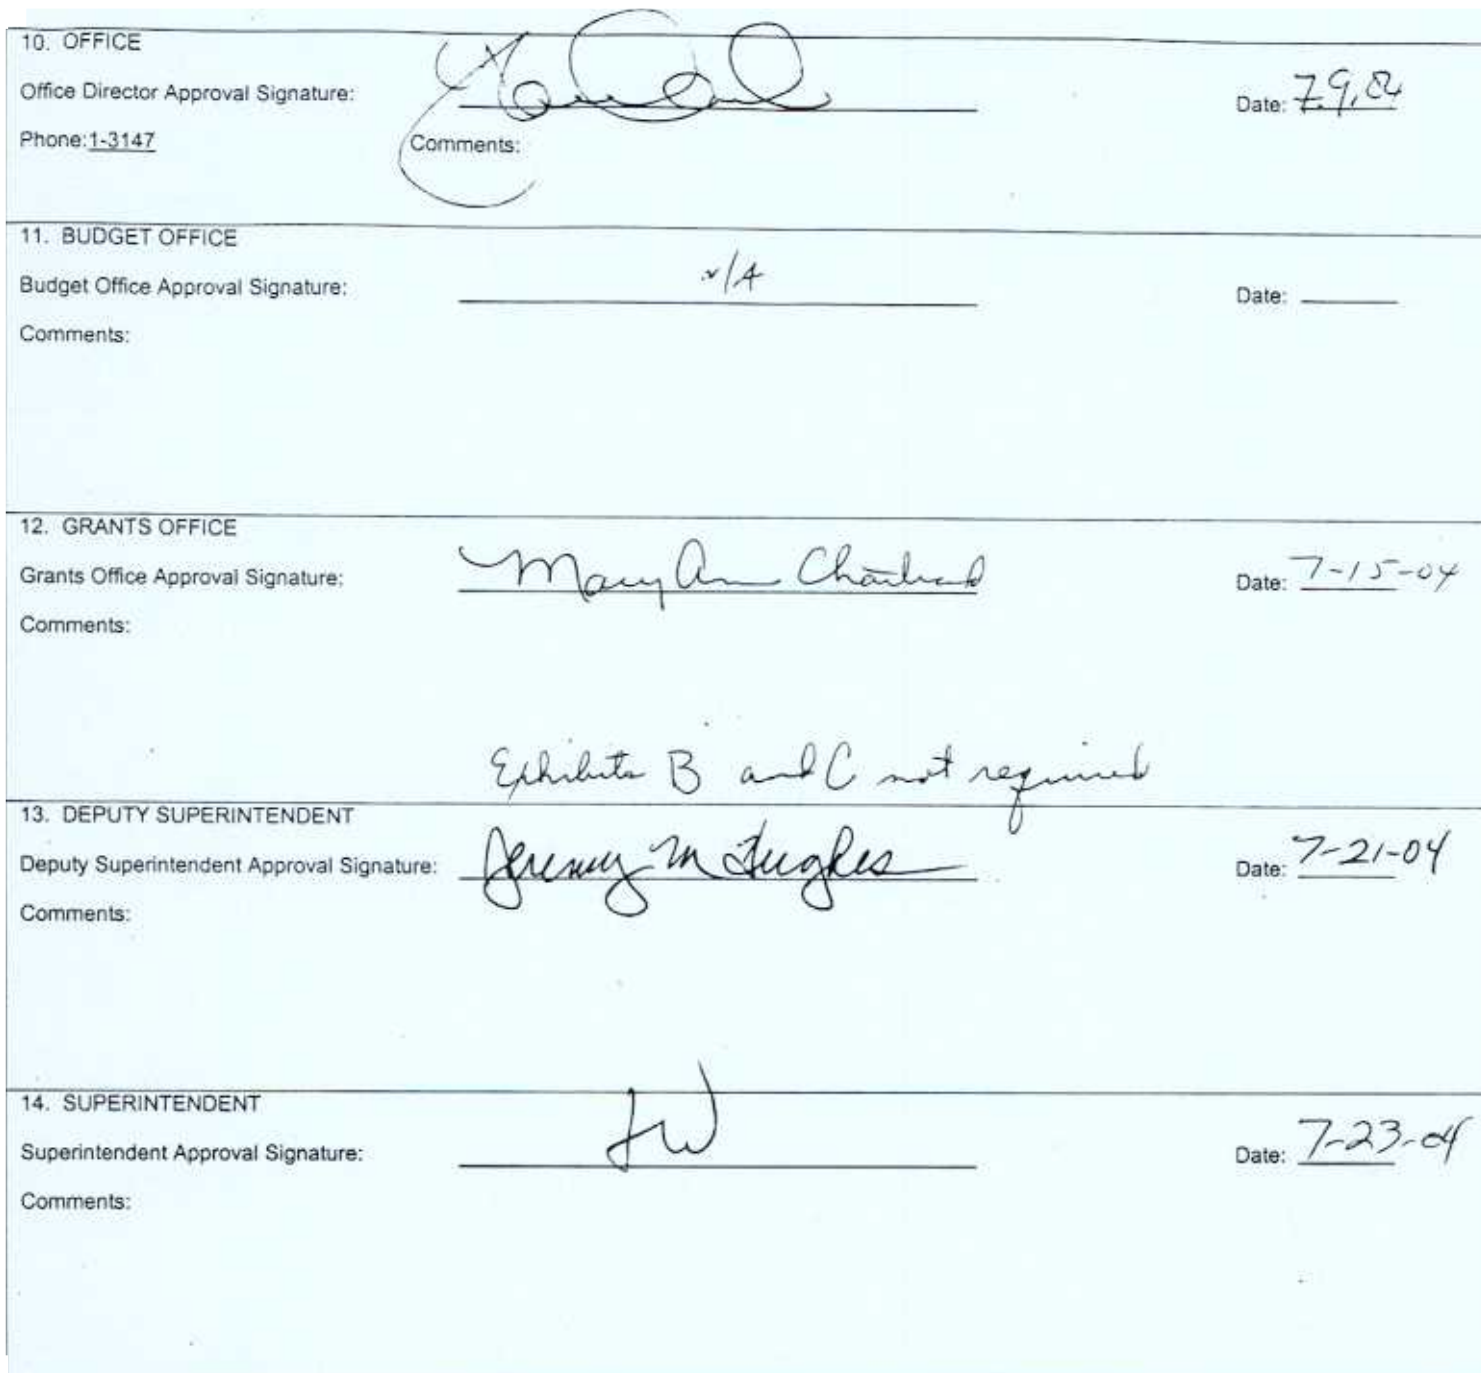 10. OFFICE
Office Director Approval Signature: Date:
Phone: 1-3147 Comments:
11. BUDGET OFFICE
Budget Office Approval Signature: N/A Date:
Comments:
12. GRANTS OFFICE
Grants Office Approval Signature: Mary Ann Chartrand Date: 7-15-04
Comments:
Exhibits B and C not required
13. DEPUTY SUPERINTENDENT
Deputy Superintendent Approval Signature: Jeremy M Hughes Date: 7-21-04
Comments:
14. SUPERINTENDENT
Superintendent Approval Signature: Date: 7-23-04
Comments: